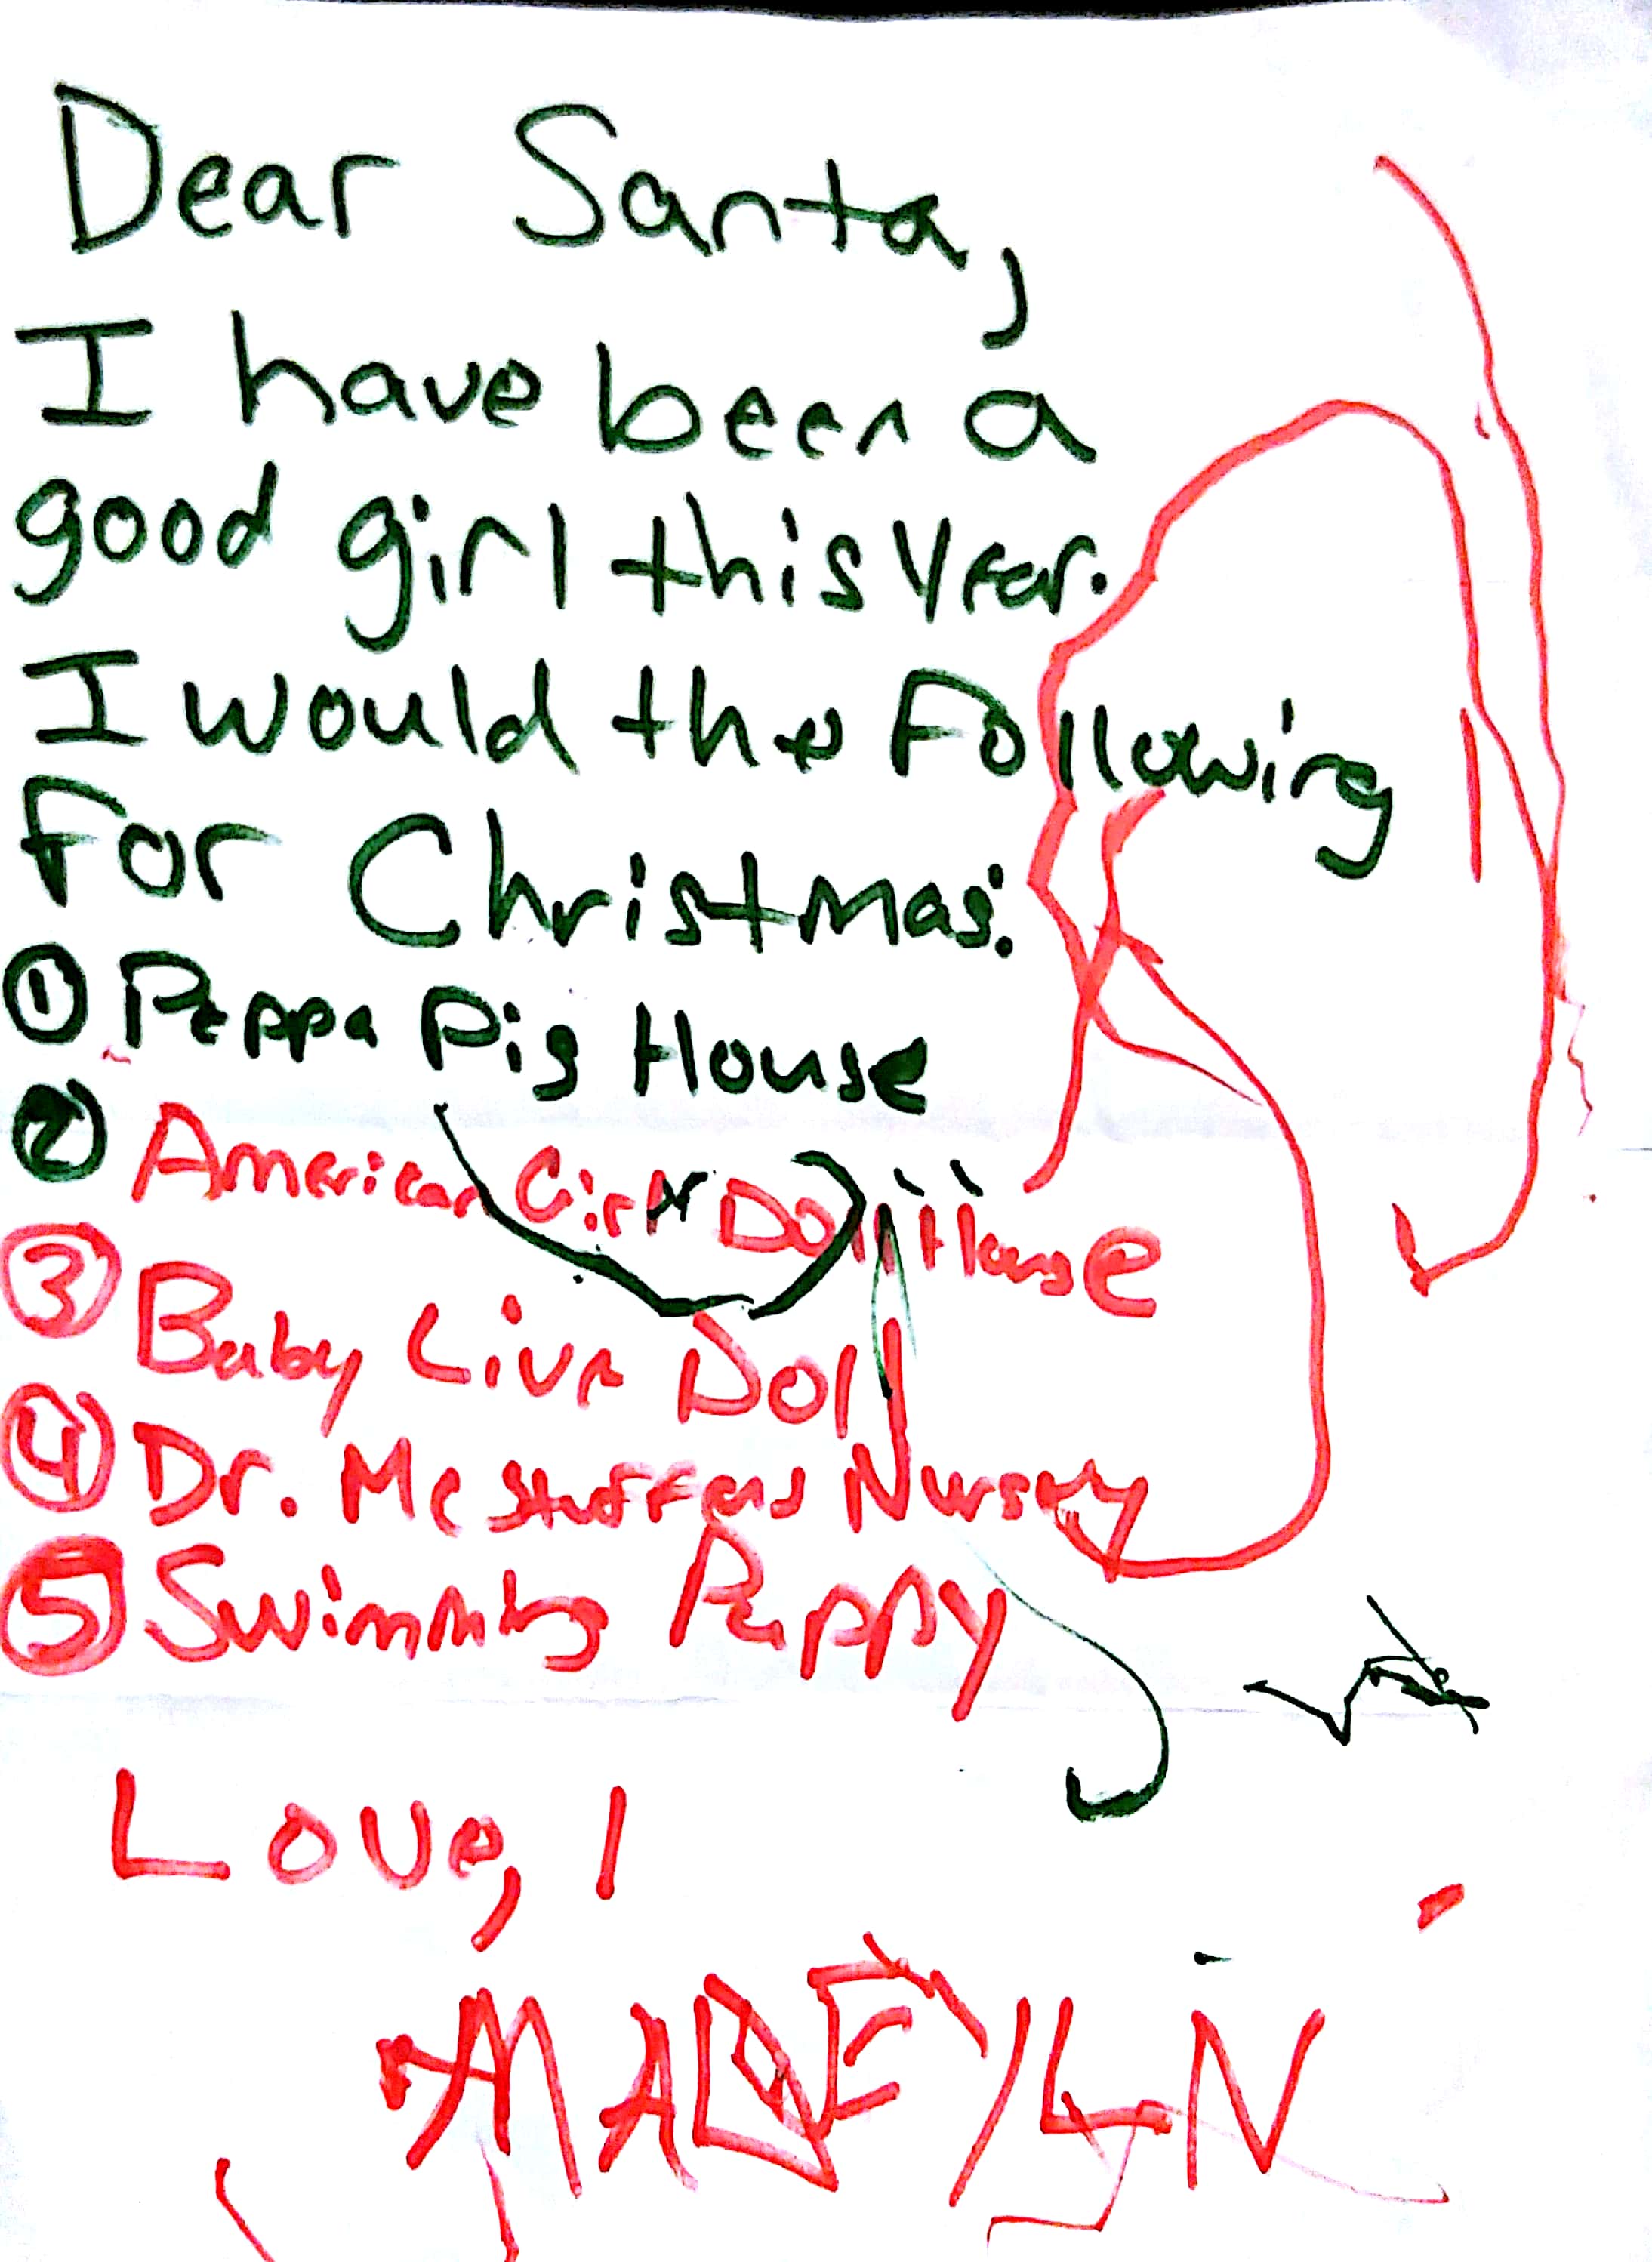 Dear Santa,
I have been a
good girl this year.
I would the Following
For Christmas:
① Peppa Pig House
② American Girl Doll House
③ Baby Live Doll
④ Dr. McStuffens Nursery
⑤ Swimming Puppy
Love,
MADEYLN